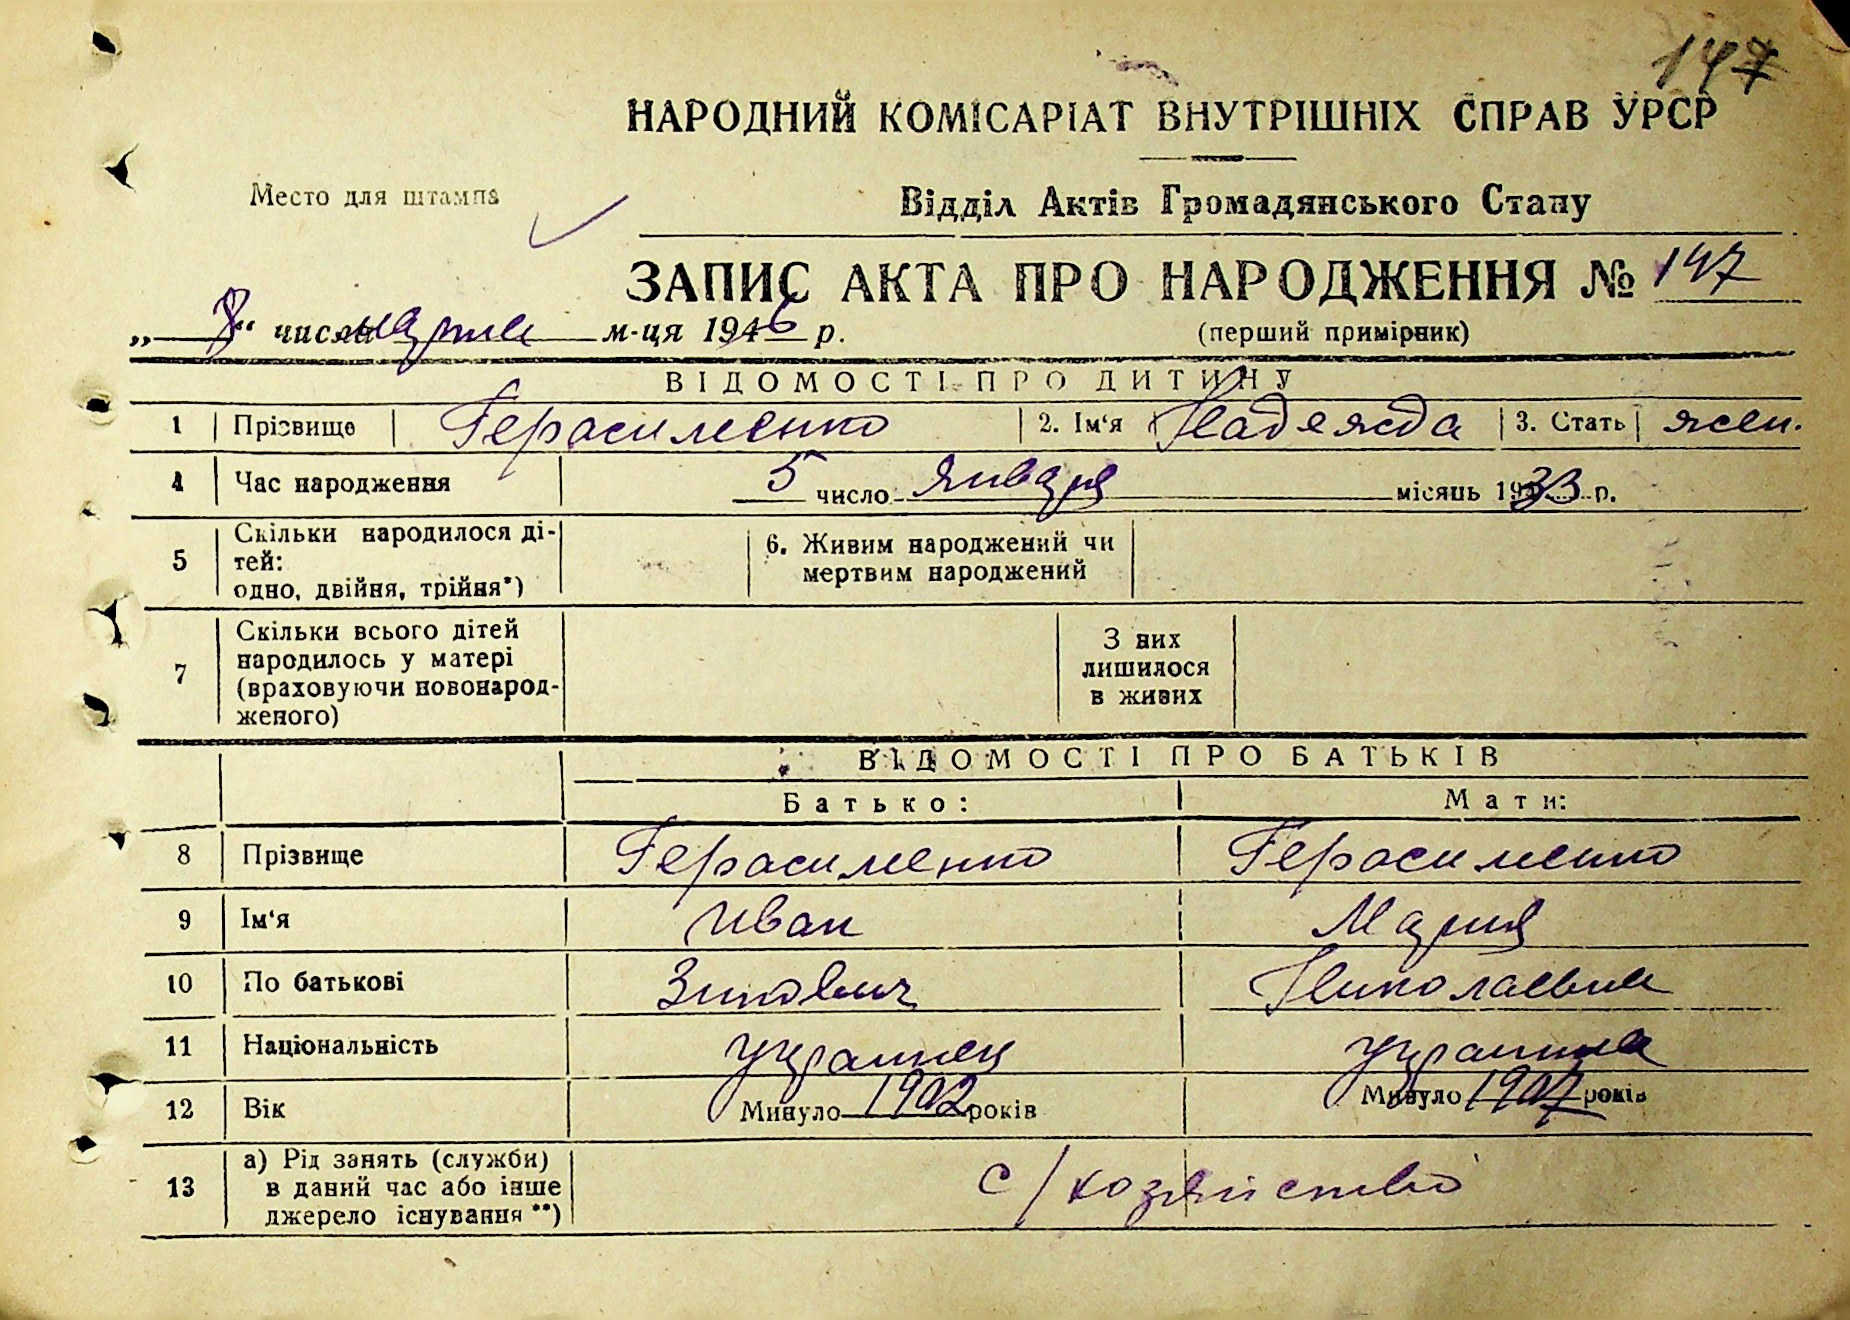 147
НАРОДНИЙ КОМІСАРІАТ ВНУТРІШНІХ СПРАВ УРСР
Место для штампа
Відділ Актів Громадянського Стану
ЗАПИС АКТА ПРО НАРОДЖЕННЯ № 147
„8“ числа марта м-ця 1946 р. (перший примірник)
ВІДОМОСТІ ПРО ДИТИНУ
1 Прізвище Герасименко 2. Ім‘я Надежда 3. Стать жен.
4 Час народження 5 число января місяць 1933 р.
5 Скільки народилося ді-
тей:
одно, двійня, трійня*)
6. Живим народжений чи
мертвим народжений
7 Скільки всього дітей
народилось у матері
(враховуючи новонарод-
женого)
З них
лишилося
в живих
ВІДОМОСТІ ПРО БАТЬКІВ
Батько: Мати:
8 Прізвище Герасименко Герасименко
9 Ім‘я Иван Мария
10 По батькові Зинович Николаевна
11 Національність украинец украинка
12 Вік Минуло 1902 років Минуло 1907 років
13 а) Рід занять (служби)
в даний час або інше
джерело існування **)
с/хозяйство